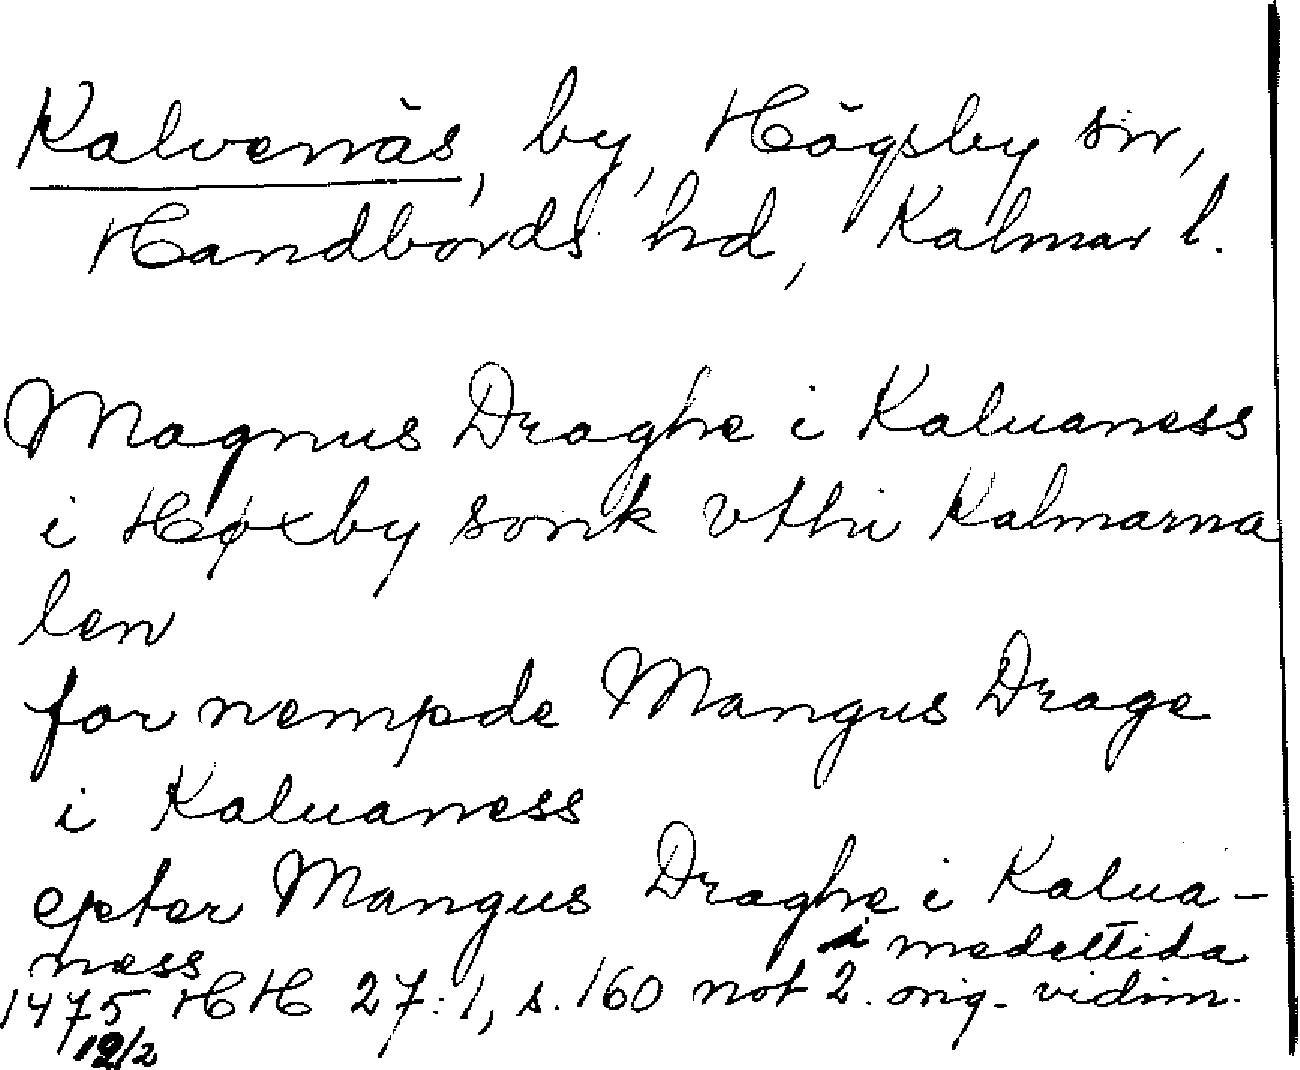 Kalvenäs, by, Högsby sn,
Handbörds hd, Kalmar l.
Magnus Draghe i Kaluaness
i Høxby sonk vthi Kalmarna
len
for nempde Mangus Drage
i Kaluaness
epter Mangus Draghe i Kalua-
ness
i medeltida
1475 HH 27:1, s. 160 not 2. orig. vidim.
12/2